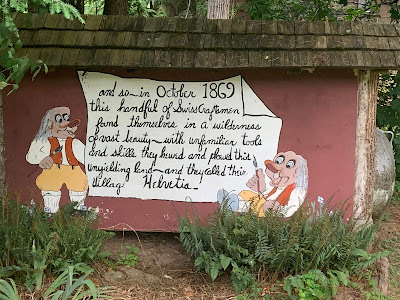 and so in October 1869
this handful of Swiss Craftsmen
found themselves in a wilderness
of vast beauty with unfamiliar tools
and skills they hewed and plowed this
unyielding land and they called their
Village Helvetia